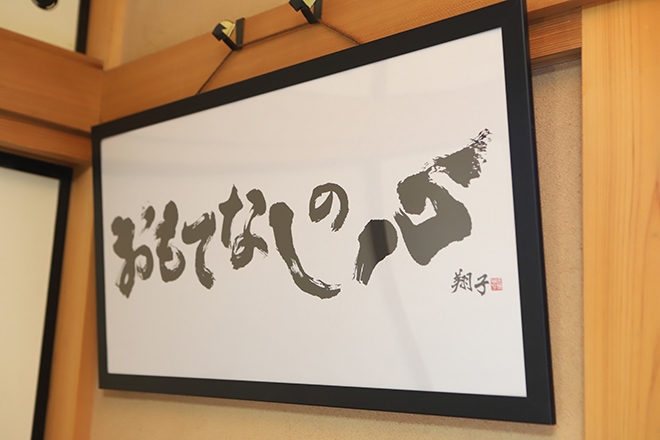 おもてなしの心
翔子